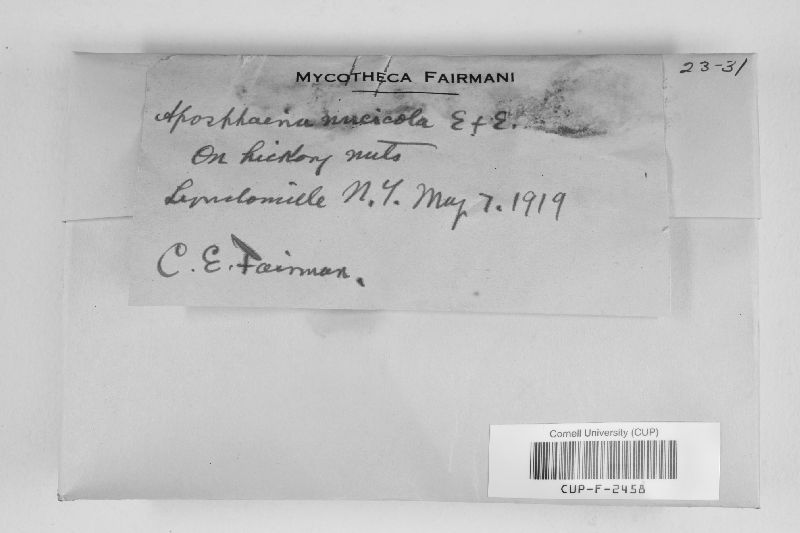 MYCOTHECA FAIRMANI
23-31
Aposphaeria nucicola E & E.
On hickory nuts
Lyndonville N.Y. May 7. 1919
C. E. Fairman.
Cornell University (CUP)
CUP-F-2458